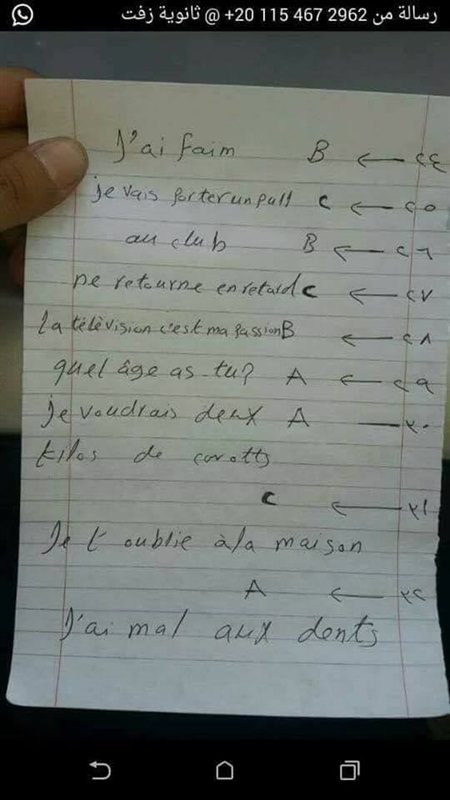 رسالة من ‎+20 115 467 2962 @ ثانوية زفت
J'ai faim B ← ٢٤
je vais porter un pull C ← ٢٥
au club B ← ٢٦
ne retourne en retard C ← ٢٧
la télévision c'est ma passion B ← ٢٨
quel âge as-tu? A ← ٢٩
je voudrais deux A — ٣٠
kilos de carotts
C ← ٣١
Je t oublie à la maison
A ← ٣٢
J'ai mal aux dents